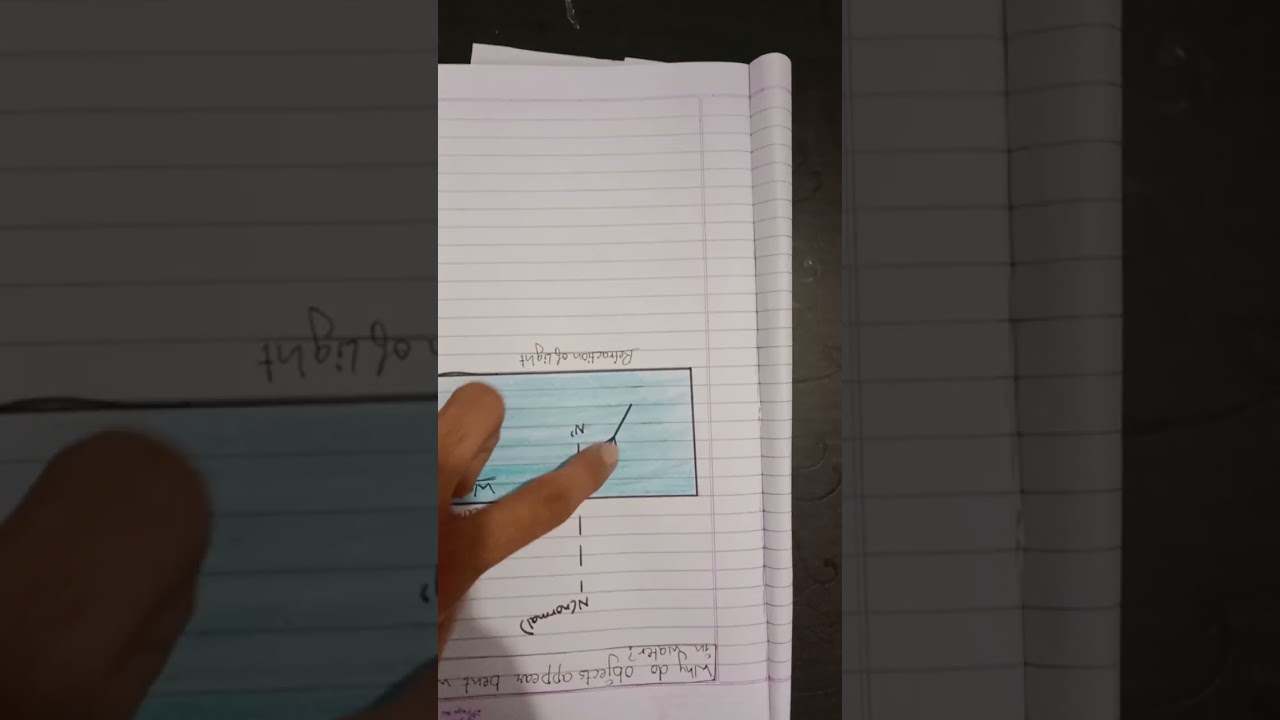 Why do objects appear bent
in water?
N(normal)
N'
Refraction of Light
of Light